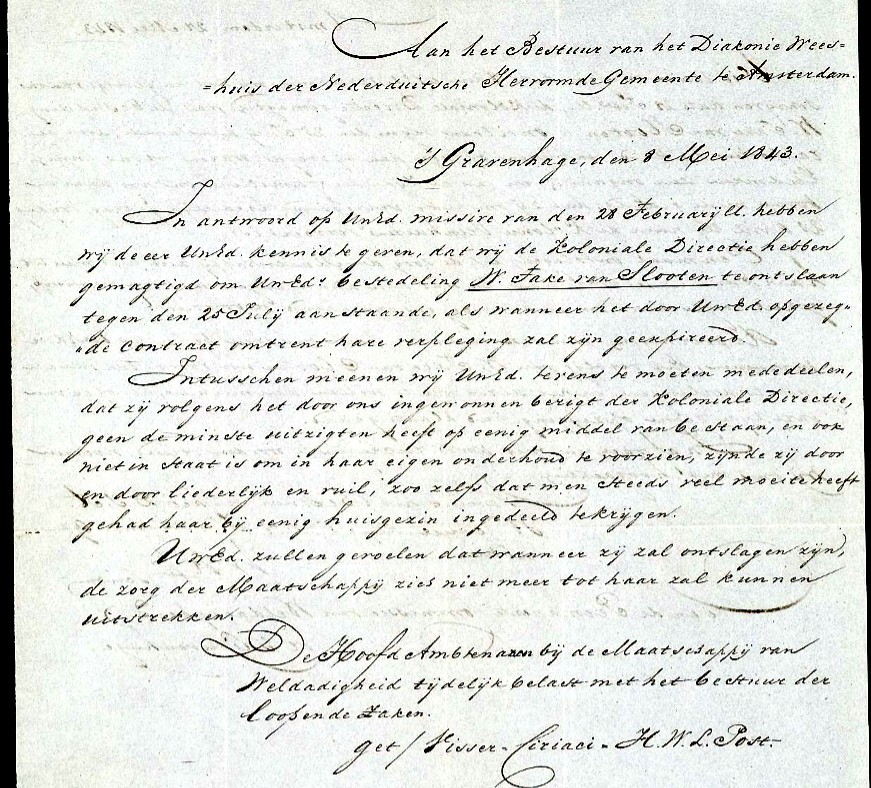 Aan het Bestuur van het Diakonie Wees=
=huis der Nederduitsche Hervormde Gemeente te Amsterdam.
's Gravenhage, den 8 Mei 1843.
In antwoord op UwEd. missive van den 28 Februarij ll. hebben
wij de eer UwEd. kennis te geven, dat wij de Koloniale Directie hebben
gemagtigd om UwEds bestedeling W. Fake van Slooten te ontslaan
tegen den 25 Julij aanstaande, als wanneer het door UwEd. opgezeg„
„de contract omtrent hare verpleging zal zijn geexpireerd.
Intusschen meenen wij UwEd. tevens te moeten mededeelen,
dat zij volgens het door ons ingewonnen berigt der Koloniale Directie,
geen de minste uitzigten heeft op eenig middel van bestaan, en ook
niet in staat is om in haar eigen onderhoud te voorzien, zijnde zij door
en door liederlijk en vuil, zoo zelfs dat men steeds veel moeite heeft
gehad haar bij eenig huisgezin ingedeeld te krijgen.
UwEd. zullen gevoelen dat wanneer zij zal ontslagen zijn,
de zorg der Maatschappij zich niet meer tot haar zal kunnen
uitstrekken.
De Hoofd Ambtenaren bij de Maatschappij van
Weldadigheid tijdelijk belast met het bestuur der
loopende zaken.
get/ Visser - Ciriaci - H.W.L. Post.